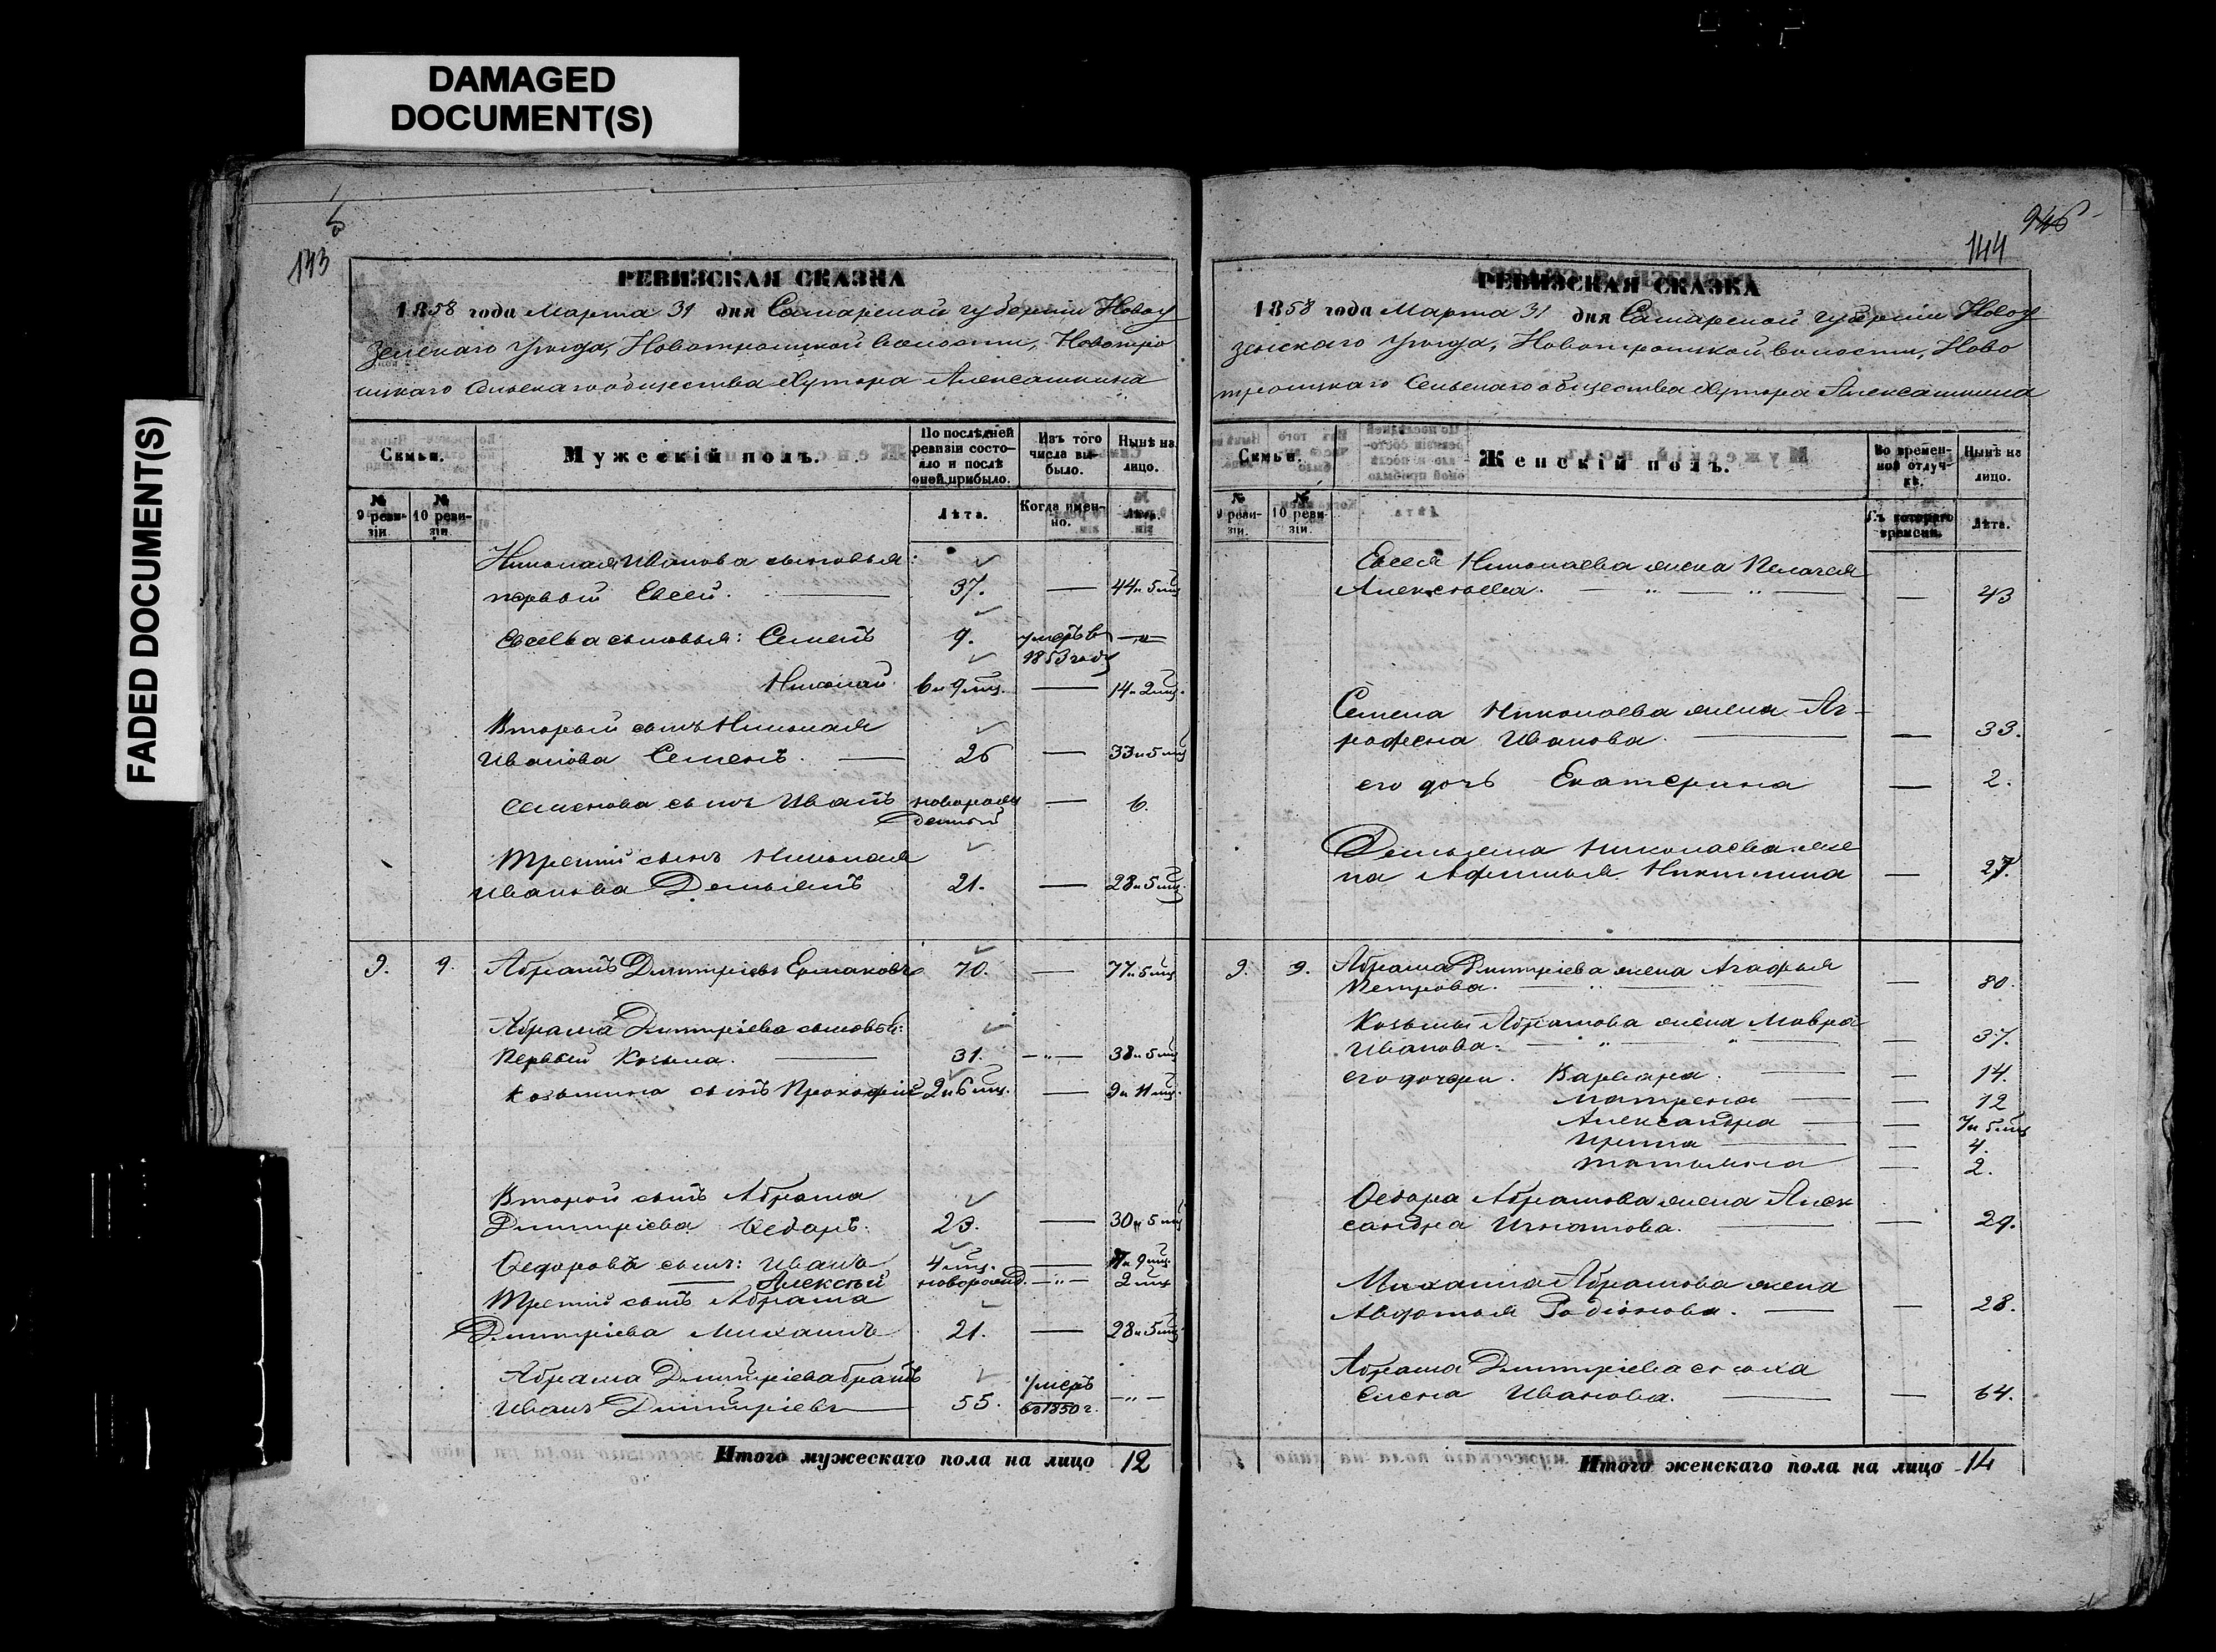 DAMAGED
DOCUMENT(S)
FADED DOCUMENT(S)
143
РЕВИЗСКАЯ СКАЗКА
1858 года Марта 31 дня Самарской губернiи Новоу
зенскаго Уѣзда, Новотроицкой волости, Новотро
ицкаго Сельскаго общества Хутора Алексашкина
Семьи.
Мужескiй полъ.
По послѣдней ревизiи состояло и послѣ оной прибыло.
Изъ того числа выбыло.
Нынѣ на лицо.
№ 9 ревизiи
№ 10 ревизiи
Лѣта.
Когда именно.
Лѣта.
Николая Иванова сыновья:
первый Евсей. 37. — 44 и 5 мц
Евсеева сыновья: Семенъ 9. умеръ в 1853 году —"—
Николай 6 и 9 мц. — 14 и 2 мц.
Вторый сынъ Николая
Иванова Семенъ. — 26 — 33 и 5 мц
Семенова сынъ Иванъ новорожденный — 6.
Третiй сынъ Николая
Иванова Демьянъ 21. — 28 и 5 мц.
9. 9. Абрамъ Дмитрiевъ Ермаковъ 70. — 77 и 5 мц
Абрама Дмитрiева сыновья:
Первый Козьма. — 31. —"— 38 и 5 мц
Козьмина сынъ Прокофiй 2 и 6 мц. — 9 и 11 мц.
Второй сынъ Абрама
Дмитрiева Ѳедоръ. 23. — 30 и 5 мц
Ѳедорова сынъ: Иванъ 4 мц. — 7 и 9 мц.
— Алексѣй новорожд. —"— 2 мц
Третiй сынъ Абрама
Дмитрiева Михаилъ 21. — 28 и 5 мц
Абрама Дмитрiева братъ
Иванъ Дмитрiевъ 55. умеръ въ 1850 г. —"—
Итого мужескаго пола на лицо 12
946
144
РЕВИЗСКАЯ СКАЗКА
1858 года Марта 31 дня Самарской губернiи Новоу
зенскаго Уѣзда, Новотроицкой волости, Ново
троицкаго Сельскаго общества Хутора Алексашкина
Семьи.
Женскiй полъ.
Во временной отлучкѣ.
Нынѣ на лицо.
№ 9 ревизiи
№ 10 ревизiи
Съ котораго времени.
Лѣта.
Евсея Николаева жена Пелагея
Алексѣева. — " — " — — 43
Семена Николаева жена Аг-
рофена Иванова — — 33.
его дочь Екатерина — 2.
Демьяна Николаева же
на Афимья Никитина — 27.
9. 9. Абрама Дмитрiева жена Агафья
Петрова. — 80.
Козьмы Абрамова жена Мавра
Иванова. — 37.
его дочери. Варвара. — 14.
Матрена — 12
Александра — 7 и 5 мц
Ирина — 4.
Татьяна — 2.
Ѳедора Абрамова жена Алек
сандра Игнатова. — 29.
Михаила Абрамова жена
Авдотья Родiонова. — 28.
Абрама Дмитрiева сноха
Елена Иванова. — 64.
Итого женскаго пола на лицо 14